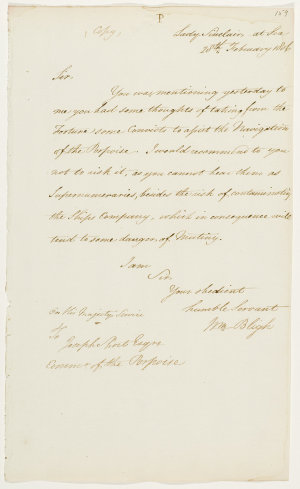 P
159
(Copy)
Lady Sinclair at Sea
28th February 1806
Sir,
You was mentioning yesterday to
me you had some thoughts of taking from the
Fortune some Convicts to assist the Navigation
of the Porpoise. I would recommend to you
not to risk it, as you cannot bear them as
Supernumeraries, besides the risk of contaminating
the Ships Company, which in consequence will
tend to some danger of Mutiny.
I am
Sir
Your obedient
humble Servant
Wm Bligh
On His Majestys Service
To
Joseph Short Esqre
Commr of the Porpoise